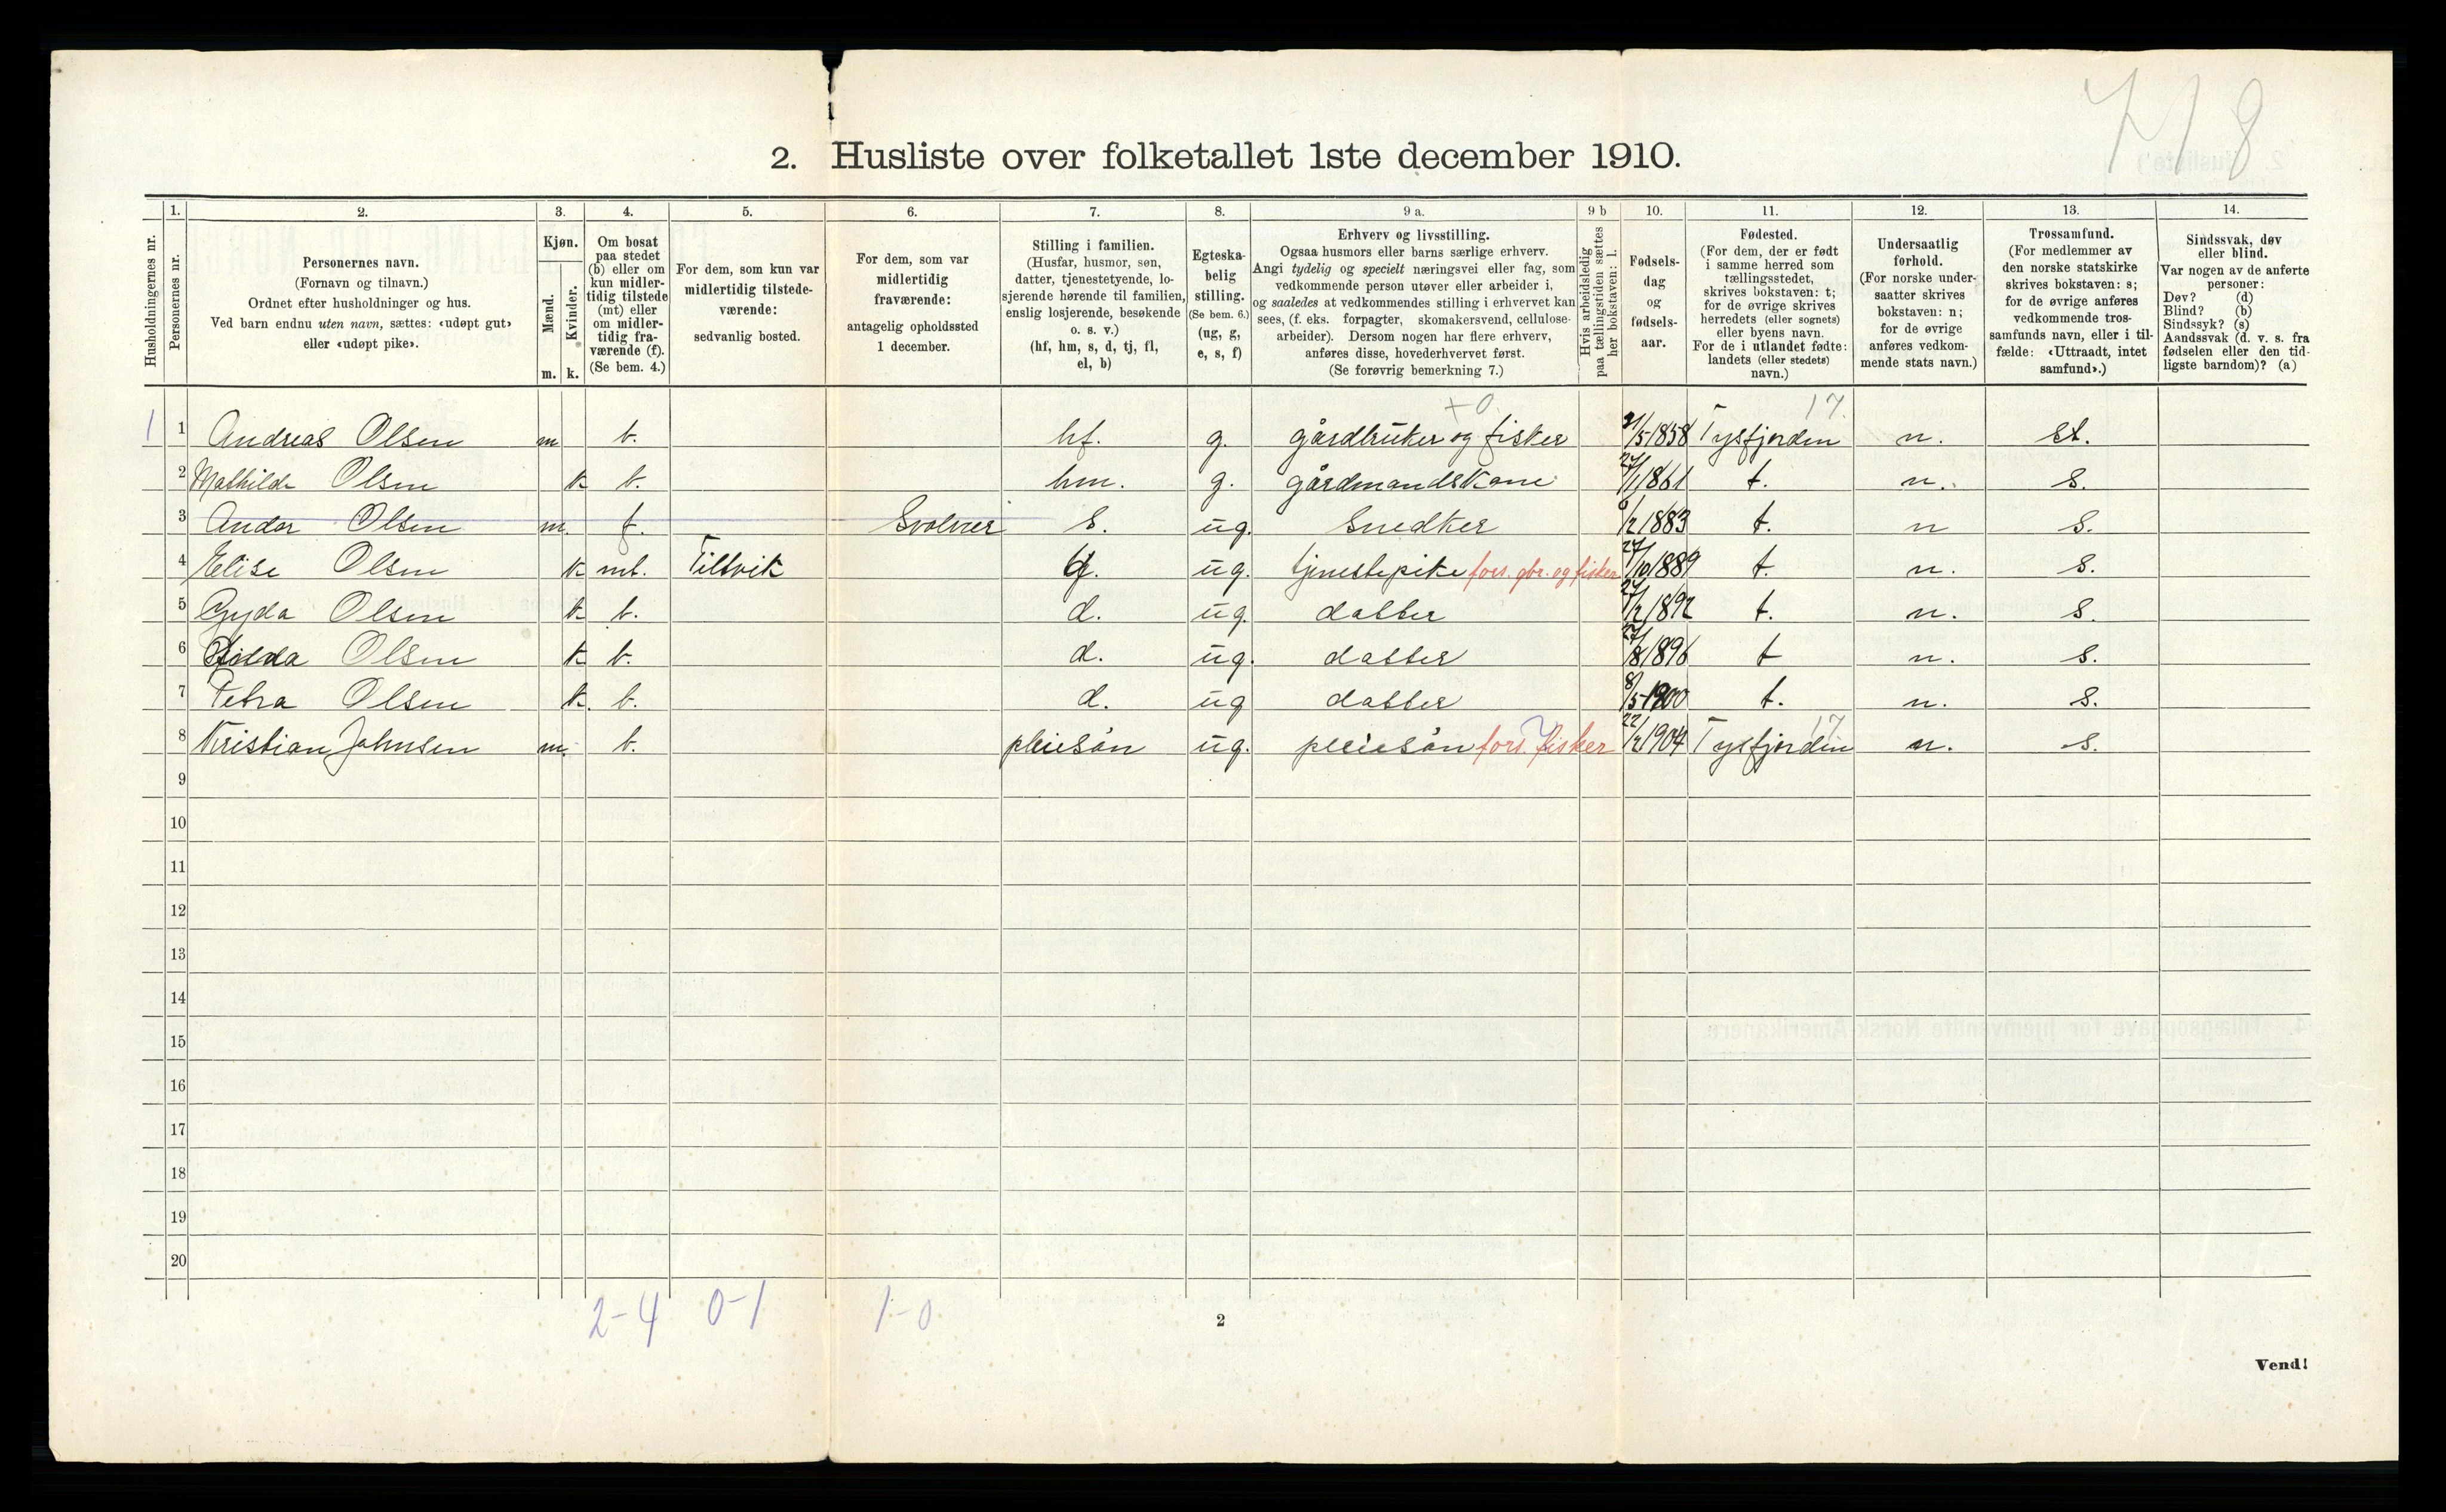 718
2. Husliste over folketallet 1ste december 1910.
Husholdningernes nr.
1. Personernes nr.
2. Personernes navn.
(Fornavn og tilnavn.)
Ordnet efter husholdninger og hus.
Ved barn endnu uten navn, sættes: «udøpt gut»
eller «udøpt pike».
3. Kjøn.
Mænd. m.
Kvinder. k.
4. Om bosat
paa stedet
(b) eller om
kun midler-
tidig tilstede
(mt) eller
om midler-
tidig fra-
værende (f).
(Se bem. 4.)
5. For dem, som kun var
midlertidig tilstede-
værende:
sedvanlig bosted.
6. For dem, som var
midlertidig
fraværende:
antagelig opholdssted
1 december.
7. Stilling i familien.
(Husfar, husmor, søn,
datter, tjenestetyende, lo-
sjerende hørende til familien,
enslig losjerende, besøkende
o. s. v.)
(hf, hm, s, d, tj, fl,
el, b)
8. Egteska-
belig
stilling.
(Se bem. 6.)
(ug, g,
e, s, f)
9 a. Erhverv og livsstilling.
Ogsaa husmors eller barns særlige erhverv.
Angi tydelig og specielt næringsvei eller fag, som
vedkommende person utøver eller arbeider i,
og saaledes at vedkommendes stilling i erhvervet kan
sees, (f. eks. forpagter, skomakersvend, cellulose-
arbeider). Dersom nogen har flere erhverv,
anføres disse, hovederhvervet først.
(Se forøvrig bemerkning 7.)
9 b Hvis arbeidsledig
paa tællingstiden sættes
her bokstaven: l.
10. Fødsels-
dag
og
fødsels-
aar.
11. Fødested.
(For dem, der er født
i samme herred som
tællingsstedet,
skrives bokstaven: t;
for de øvrige skrives
herredets (eller sognets)
eller byens navn.
For de i utlandet fødte:
landets (eller stedets)
navn.)
12. Undersaatlig
forhold.
(For norske under-
saatter skrives
bokstaven: n;
for de øvrige
anføres vedkom-
mende stats navn.)
13. Trossamfund.
(For medlemmer av
den norske statskirke
skrives bokstaven: s;
for de øvrige anføres
vedkommende tros-
samfunds navn, eller i til-
fælde: «Uttraadt, intet
samfund».)
14. Sindssvak, døv
eller blind.
Var nogen av de anførte
personer:
Døv? (d)
Blind? (b)
Sindssyk? (s)
Aandssvak (d. v. s. fra
fødselen eller den tid-
ligste barndom)? (a)
+0 17.
1 1 Andreas Olsen m b. hf. g. gårdbruker og fisker 21/5 1858 Tysfjorden n. st.
2 Mathilde Olsen k b. hm. g. gårdmandskone 27/1 1861 t. n. s.
3 Andor Olsen m. f. Svolvær s. ug. Snedker 6/2 1883 t. n s.
4 Elise Olsen k mt. Tiltvik d. ug. tjenestepike fors. gbr. og fisker 27/10 1889 t. n. s.
5 Gyda Olsen k b. d. ug. datter 27/2 1892 t. n. s.
6 Hilda Olsen k b. d. ug. datter 27/8 1896 t n. s.
7 Petra Olsen k. b. d. ug datter 8/5 1900 t. n. s.
8 Kristian Johnsen m. b. pleiesön ug. pleiesön fors. fisker 22/2 1904 Tysfjorden 17 n. s.
9
10
11
12
13
14
15
16
17
18
19
20
2-4 0-1 1-0
2
Vend!